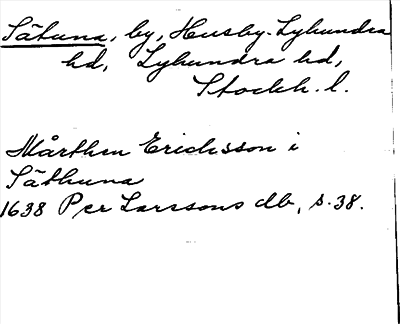 Sätuna, by, Husby-Lyhundra
hd, Lyhundra hd,
Stockh. l.
Mårthen Erichsson i
Säthuna
1638 Per Larssons db, s. 38.